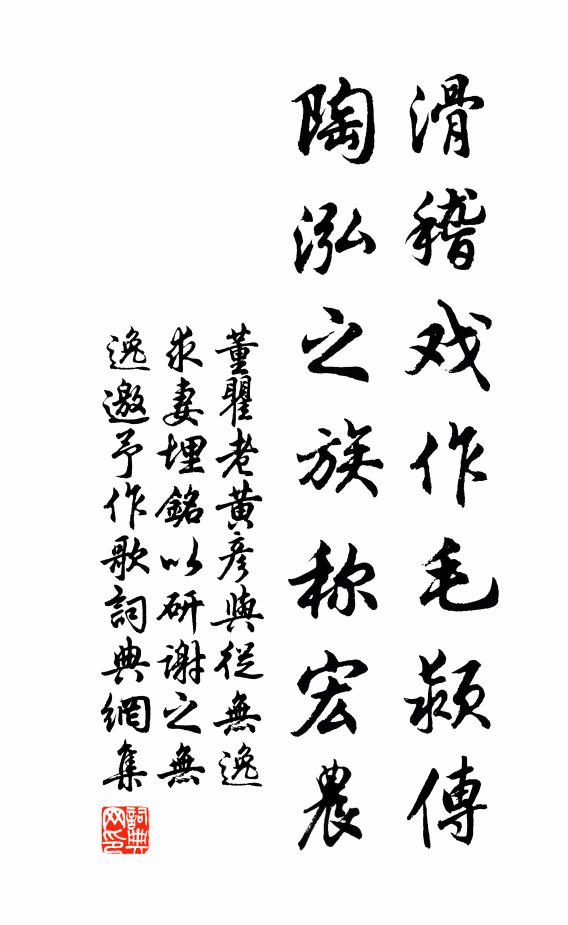 滑稽戏作毛颍傳
陶泓之族称宏農
董瞿老黄彦與従無逸
求妻埋銘以研謝之無
逸邀予作歌詞典網集
詞典网印